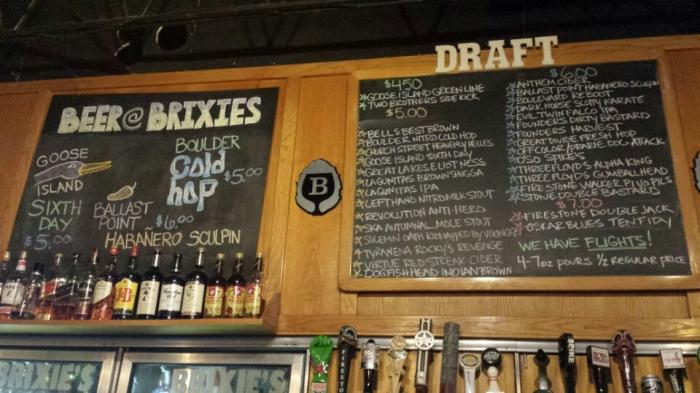 BEER@BRIXIES
GOOSE
ISLAND
SIXTH
DAY
$5.00
BOULDER
Cold
hop
$5.00
BALLAST
POINT
$6.00
HABAÑERO SCULPIN
B
DRAFT
$4.50
GOOSE ISLAND GREEN LINE
TWO BROTHERS SIDE KICK
$5.00
BELLS BEST BROWN
BOULDER NITRO COLD HOP
CHURCH STREET HEAVENLY HELLES
GOOSE ISLAND SIXTH DAY
GREAT LAKES ELIOT NESS
LAGUNITAS BROWN SHUGGA
LAGUNITAS IPA
LEFTHAND NITRO MILK STOUT
REVOLUTION ANTI-HERO
SKA AUTUMNAL MOLE STOUT
SOLEMN OATH KIDNAPPED BY VIKINGS
TYRANENA ROCKY'S REVENGE
VIRTUE RED STREAK CIDER
DOGFISH HEAD INDIAN BROWN
$6.00
ANTHEM CIDER
BALLAST POINT HABANERO SCULPIN
BOULEVARD REBOOT
DARK HORSE SCOTTY KARATE
EVIL TWIN FALCO IPA
FOUNDERS DIRTY BASTARD
FOUNDERS HARVEST
GREAT DIVIDE FRESH HOP
OFF COLOR/PRAIRIE DOG ATTACK
OSO SPIKES
THREE FLOYDS ALPHA KING
THREE FLOYDS GUMBALLHEAD
FIRESTONE WALKER PIVO PILS
STONE DOUBLE BASTARD
$7.00
FIRESTONE DOUBLE JACK
OSKAR BLUES TEN FIDY
WE HAVE FLIGHTS!
4-7oz POURS ½ REGULAR PRICE
BRIXIE'S
BRIXIE'S